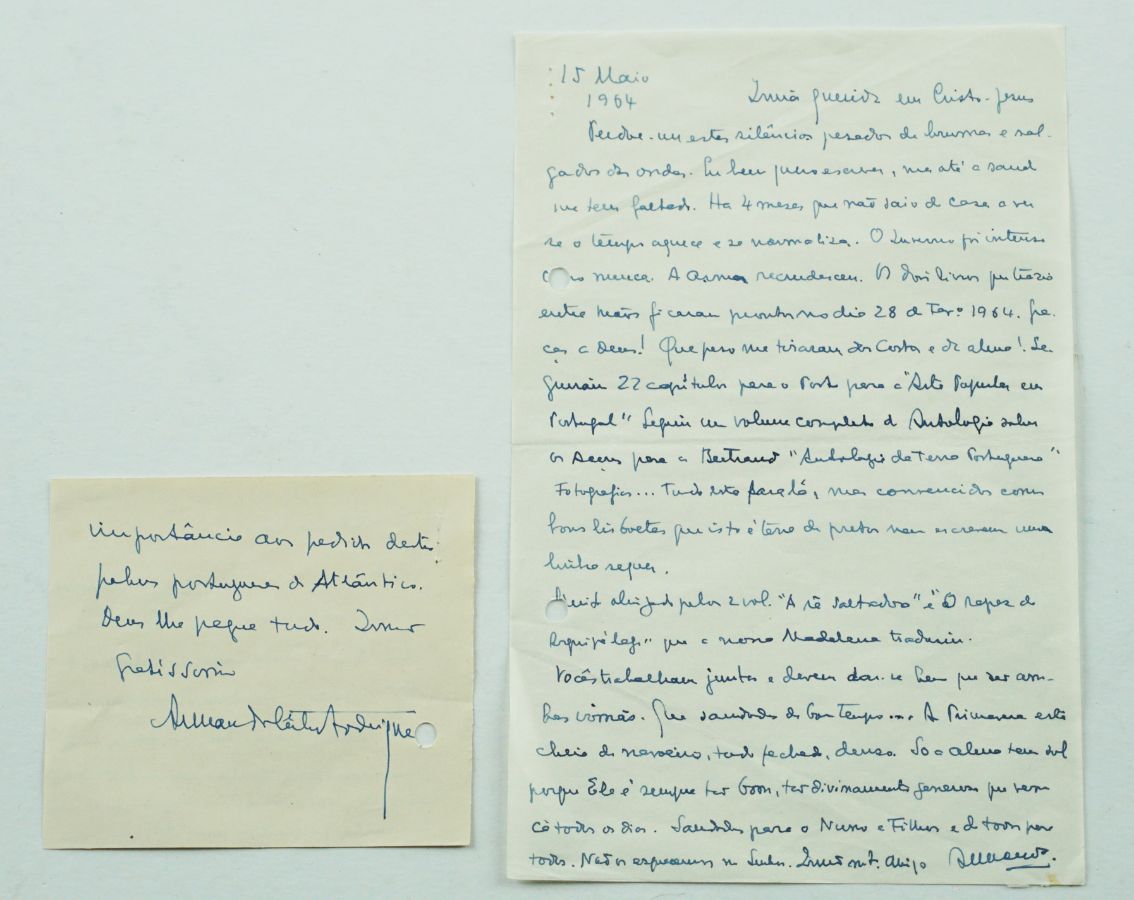 importância aos pedidos deste
pobres portugueses do Atlântico.
Deus lhe pague tudo. Irmão
gratíssimo
Armando Côrtes-Rodrigues
15 Maio
1964
Irmã querida em Cristo-Jesus
Perdoe-me estes silêncios pesados de brumas e sal-
gados das ondas. Eu bem quero escrever, mas até a saúde
me tem faltado. Ha 4 meses que não saio de casa a ver
se o tempo aquece e se normaliza. O Inverno foi intenso
como nunca. A asma recrudesceu. Os dois livros que trazia
entre mãos ficaram prontos no dia 28 de Fevº 1964. Gra-
ças a Deus! Que peso me tiraram das Costas e da alma! Se-
guiram 22 capítulos para o Porto para a "Arte Popular em
Portugal" Seguiu um volume completo de Antologia sobre
os Açores para a Bertrand "Antologia da Terra Portuguesa"
Fotografias... Tudo está para lá, mas convencidos como
bons lisboetas que isto é terra de pretos nem escrevem uma
linha sequer.
Muito obrigado pelos 2 vol. "A rã saltadora" e "O rapaz do
Arquipélago" que a nossa Madalena traduziu.
Vocês trabalham juntas e devem dar-se bem por ser am-
bas irmãs. Que saudades do bom tempo.... A Primavera está
cheia de nevoeiro, tudo fechado, denso. Só a alma tem sol
porque Ele é sempre tão bom, tão divinamente generoso que vem
cá todos os dias. Saudades para o Nuno e Filhos e de todos para
todos. Não os esquecemos no Senhor. Irmão mtº amigo Armando.